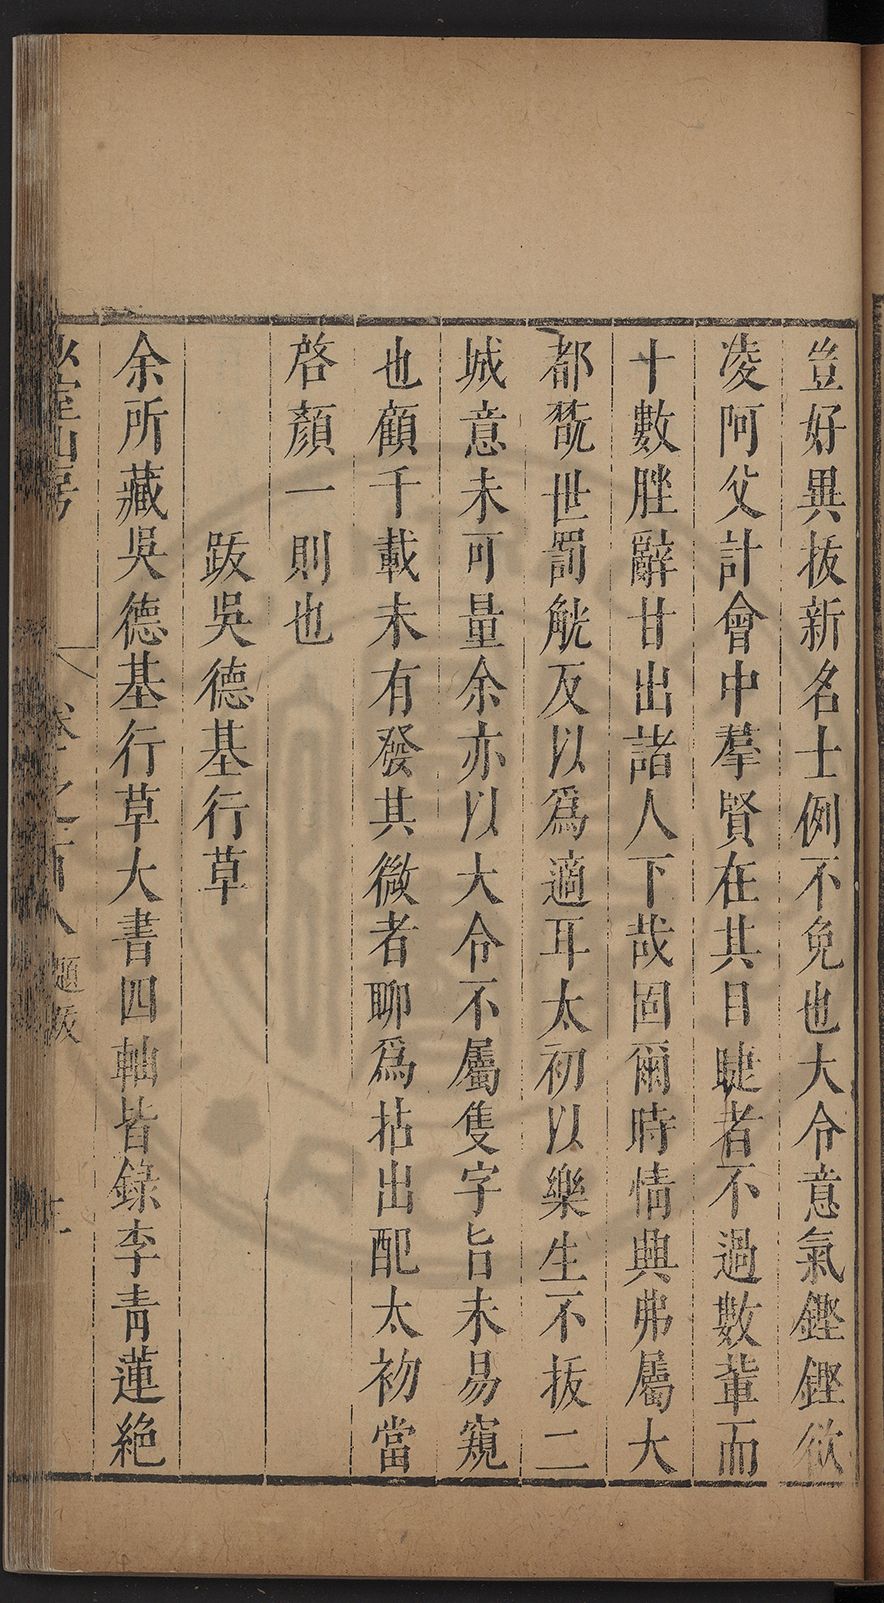 豈好異拔新名士例不免也大令意氣鏗鏗欲
凌阿父計會中羣賢在其目睫者不過數輩而
十數脞辭甘出諸人下哉固爾時情興弗屬大
都翫世罰觥反以爲適耳太初以樂生不拔二
城意未可量余亦以大令不屬隻字旨未易窺
也顧千載未有發其微者聊爲拈出配太初當
啓顏一則也
跋吳德基行草
余所藏吳德基行草大書四軸皆錄李青蓮絶
室山房
卷
之百八
題跋